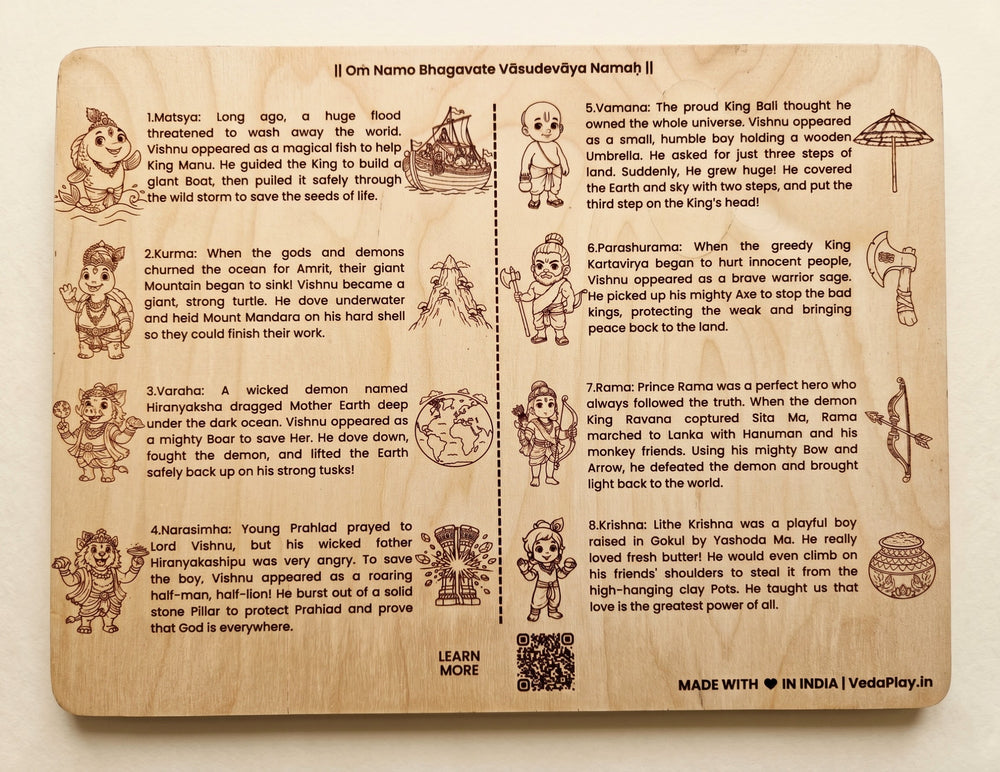 || Oṁ Namo Bhagavate Vāsudevāya Namaḥ ||
1.Matsya: Long ago, a huge flood
threatened to wash away the world.
Vishnu appeared as a magical fish to help
King Manu. He guided the King to build a
giant Boat, then puiled it safely through
the wild storm to save the seeds of life.
2.Kurma: When the gods and demons
churned the ocean for Amrit, their giant
Mountain began to sink! Vishnu became a
giant, strong turtle. He dove underwater
and heid Mount Mandara on his hard shell
so they could finish their work.
3.Varaha: A wicked demon named
Hiranyaksha dragged Mother Earth deep
under the dark ocean. Vishnu appeared as
a mighty Boar to save Her. He dove down,
fought the demon, and lifted the Earth
safely back up on his strong tusks!
4.Narasimha: Young Prahlad prayed to
Lord Vishnu, but his wicked fother
Hiranyakashipu was very angry. To save
the boy, Vishnu appeared as a roaring
half-man, half-lion! He burst out of a solid
stone Pillar to protect Prahiad and prove
that God is everywhere.
5.Vamana: The proud King Bali thought he
owned the whole universe. Vishnu appeared
as a small, humble boy holding a wooden
Umbrella. He asked for just three steps of
land. Suddenly, He grew huge! He covered
the Earth and sky with two steps, and put the
third step on the King's head!
6.Parashurama: When the greedy King
Kartavirya began to hurt innocent people,
Vishnu appeared as a brave warrior sage.
He picked up his mighty Axe to stop the bad
kings, protecting the weak and bringing
peace bock to the land.
7.Rama: Prince Rama was a perfect hero who
always followed the truth. When the demon
King Ravana coptured Sita Ma, Rama
marched to Lanka with Hanuman and his
monkey friends. Using his mighty Bow and
Arrow, he defeated the demon and brought
light back to the world.
8.Krishna: Lithe Krishna was a playful boy
raised in Gokul by Yashoda Ma. He really
loved fresh butter! He would even climb on
his friends' shoulders to steal it from the
high-hanging clay Pots. He taught us that
love is the greatest power of all.
LEARN
MORE
MADE WITH ♥ IN INDIA | VedaPlay.in